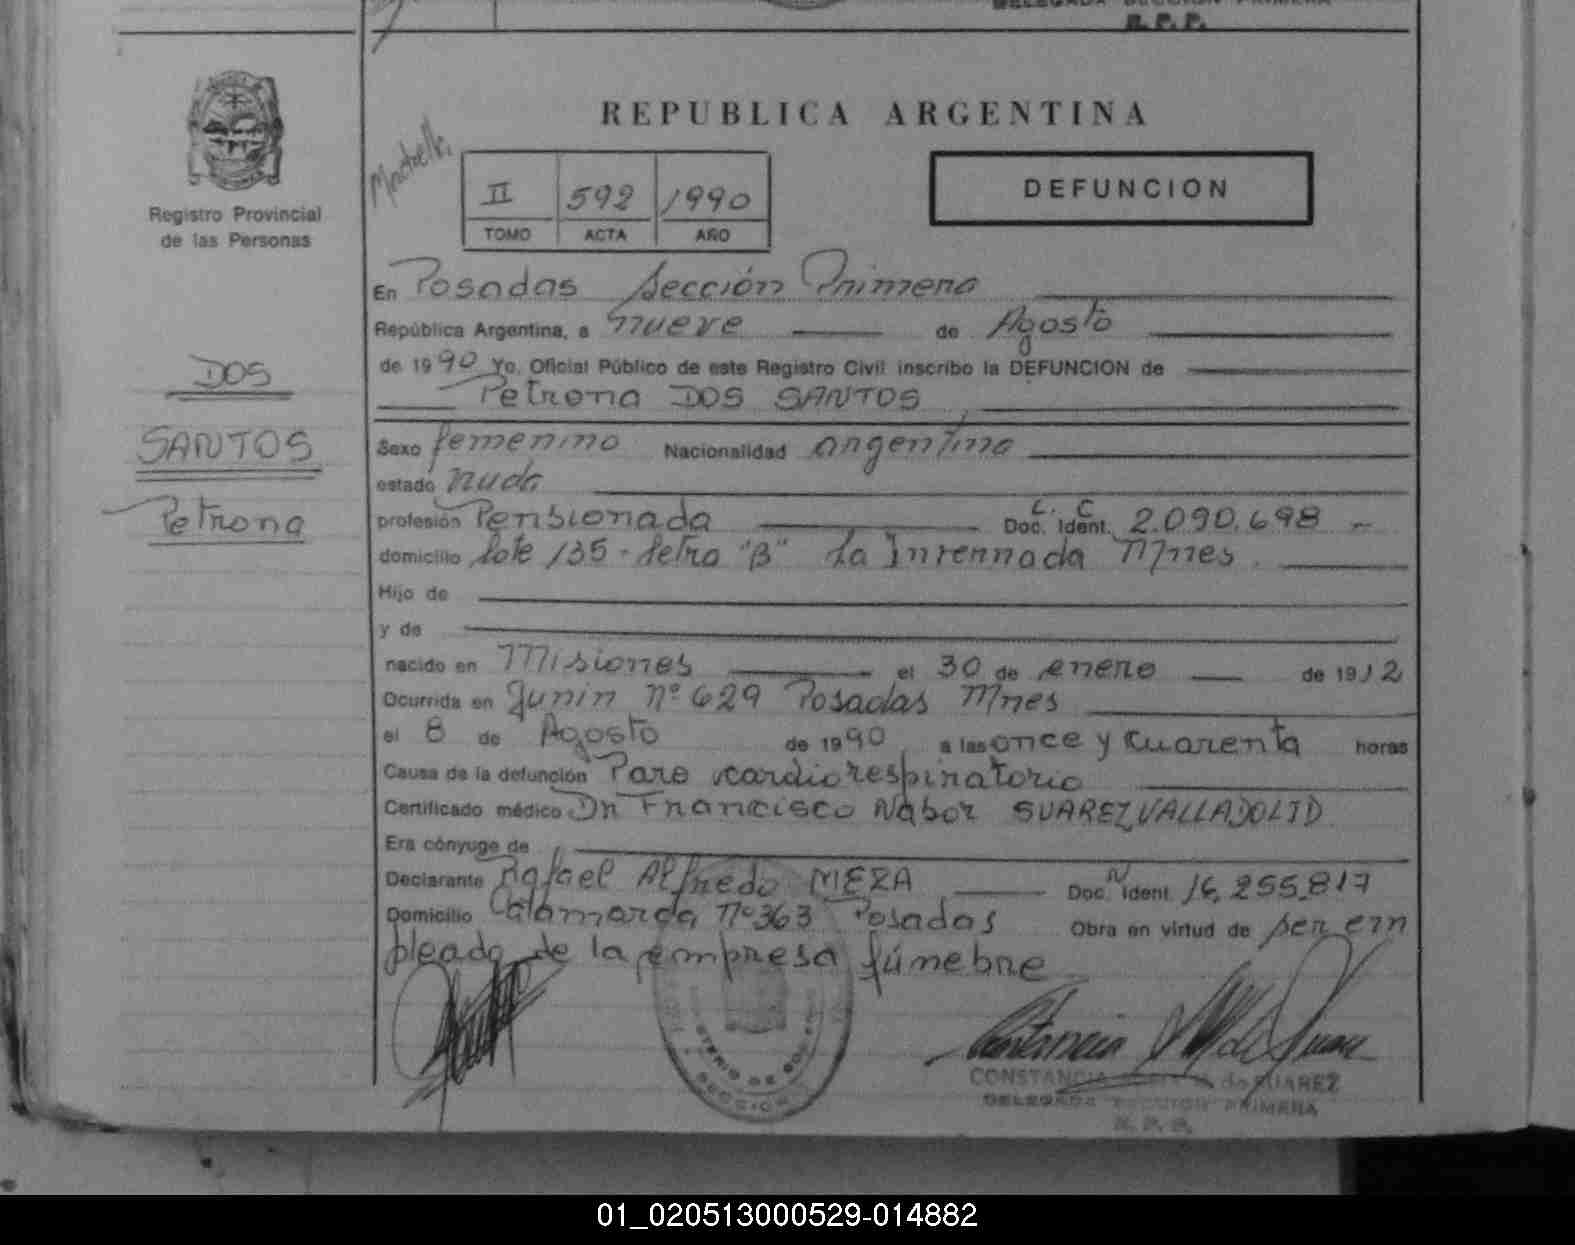 DELEGADA SECCION PRIMERA
R. P. P.
Registro Provincial
de las Personas
DOS
SANTOS
Petrona
REPUBLICA ARGENTINA
II 592 1990
TOMO ACTA AÑO
DEFUNCION
En Posadas Sección Primera
República Argentina, a nueve de Agosto
de 1990 Yo, Oficial Público de este Registro Civil inscribo la DEFUNCION de
Petrona DOS SANTOS
Sexo femenino Nacionalidad argentina
estado viuda
profesión Pensionada Doc. Ident. L. C 2.090.698
domicilio lote 135 - letra "B" La Invernada Mnes
Hijo de
y de
nacido en Misiones el 30 de enero de 1912
Ocurrida en Junin nº 629 Posadas Mnes
el 8 de Agosto de 1990 a las once y cuarenta horas
Causa de la defunción Paro cardiorespiratorio
Certificado médico Dr Francisco Nabor SUAREZ VALLADOLID
Era cónyuge de
Declarante Rafael Alfredo MEZA Doc. Ident. 16.255.817
Domicilio Catamarca nº 363 Posadas Obra en virtud de ser em
pleado de la empresa fúnebre
CONSTANCIA de SUAREZ
DELEGADA SECCION PRIMERA
R. P. P.
01_020513000529-014882